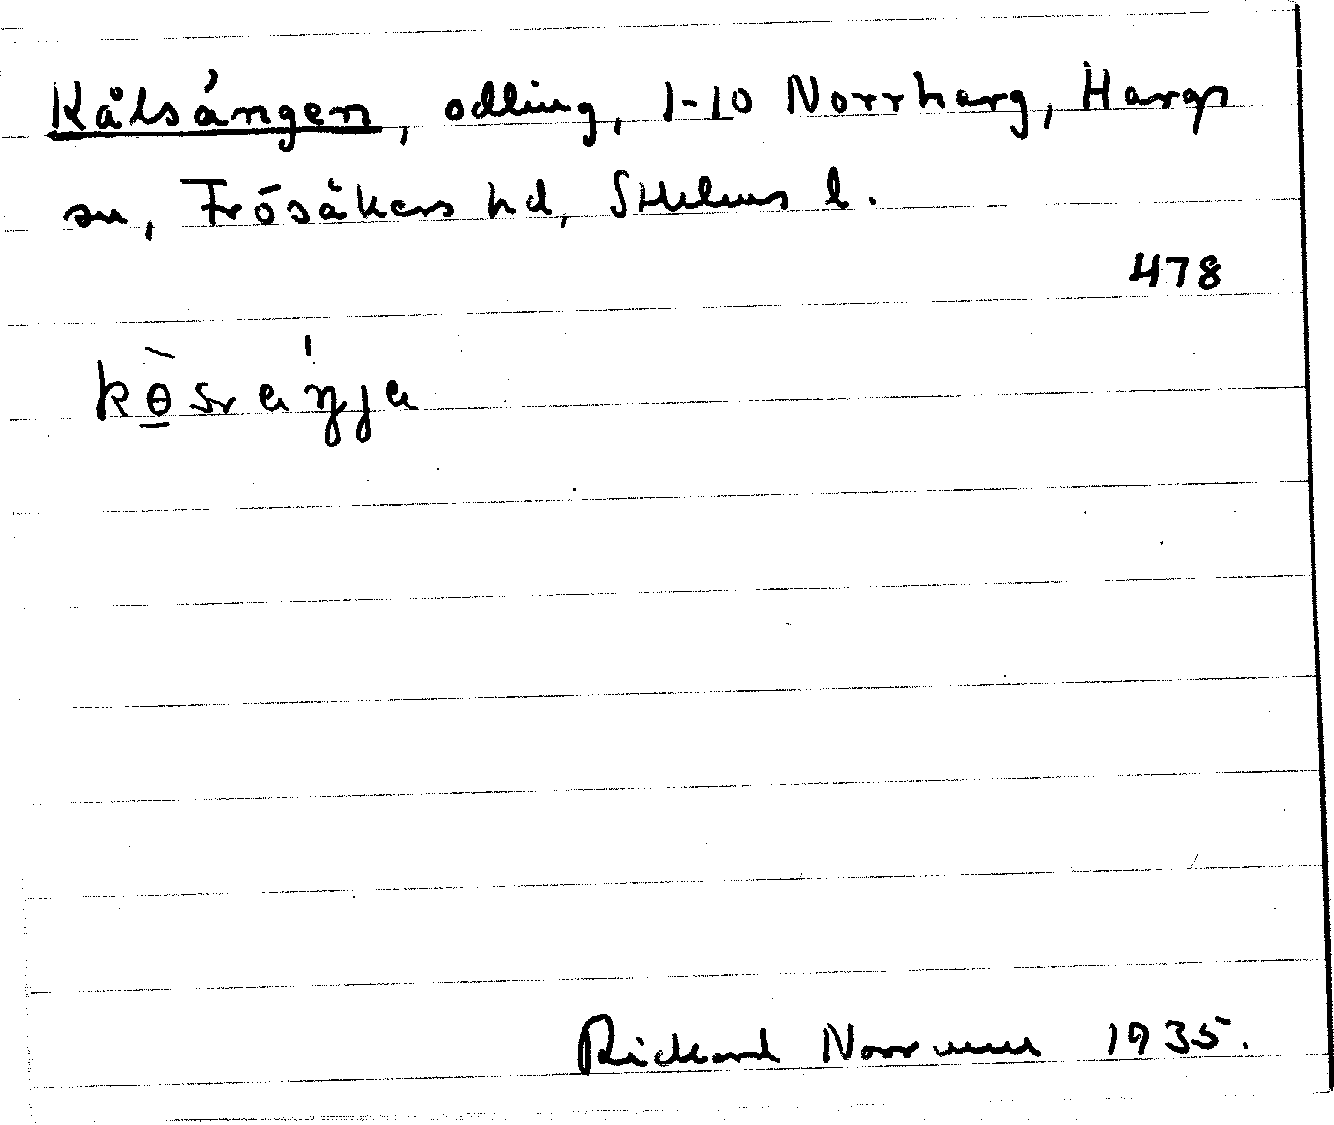 Kålsängen, odling, 1-10 Norrharg, Hargs
sn, Frösåkers hd, Sthlms l.
478
Rickard Norrman 1935.